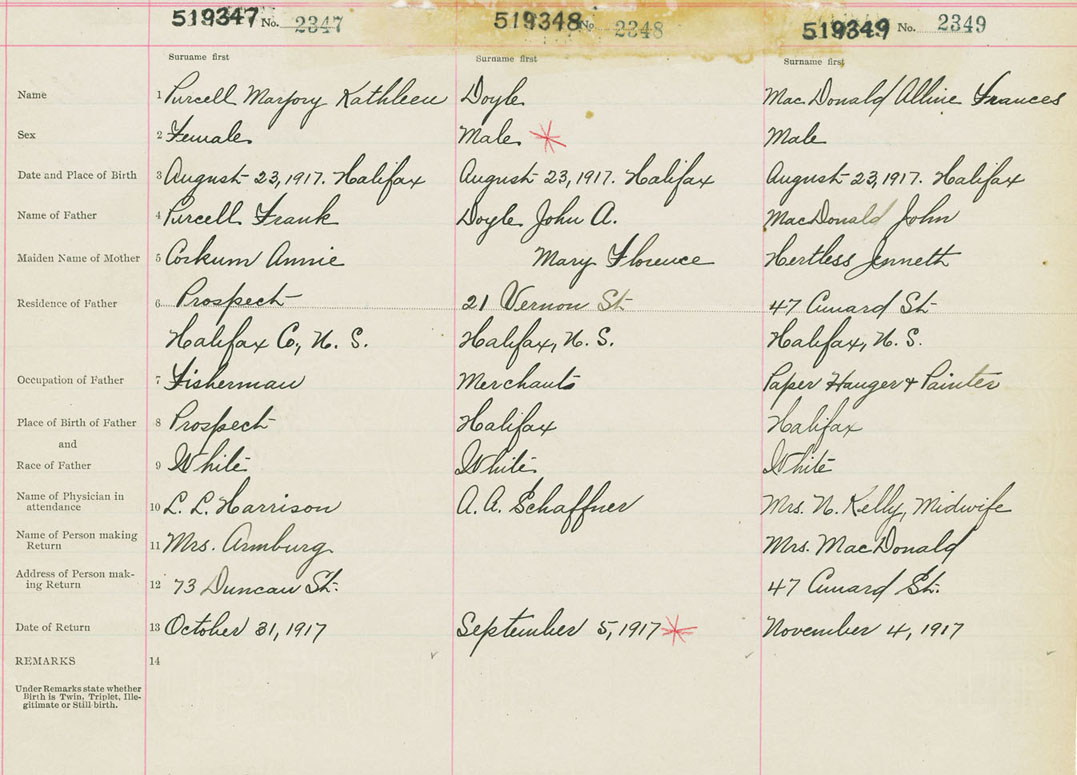 519347 No. 2347 519348 No. 2348 519349 No. 2349
Surname first Surname first Surname first
Name 1 Purcell Marjory Kathleen Doyle MacDonald Alline Frances
Sex 2 Female Male Male
Date and Place of Birth 3 August 23, 1917. Halifax August 23, 1917. Halifax August 23, 1917. Halifax
Name of Father 4 Purcell Frank Doyle John A. MacDonald John
Maiden Name of Mother 5 Corkum Annie Mary Florence Hertless Jenneth
Residence of Father 6 Prospect 21 Vernon St 47 Cunard St
Halifax Co, N. S. Halifax, N. S. Halifax, N. S.
Occupation of Father 7 Fisherman Merchants Paper Hanger & Painter
Place of Birth of Father 8 Prospect Halifax Halifax
and
Race of Father 9 White White White
Name of Physician in
attendance 10 L. L. Harrison A. A. Schaffner Mrs. N. Kelly, Midwife
Name of Person making
Return 11 Mrs. Armburg Mrs. MacDonald
Address of Person mak-
ing Return 12 73 Duncan St. 47 Cunard St.
Date of Return 13 October 31, 1917 September 5, 1917 November 4, 1917
REMARKS 14
Under Remarks state whether
Birth is Twin, Triplet, Ille-
gitimate or Still-birth.